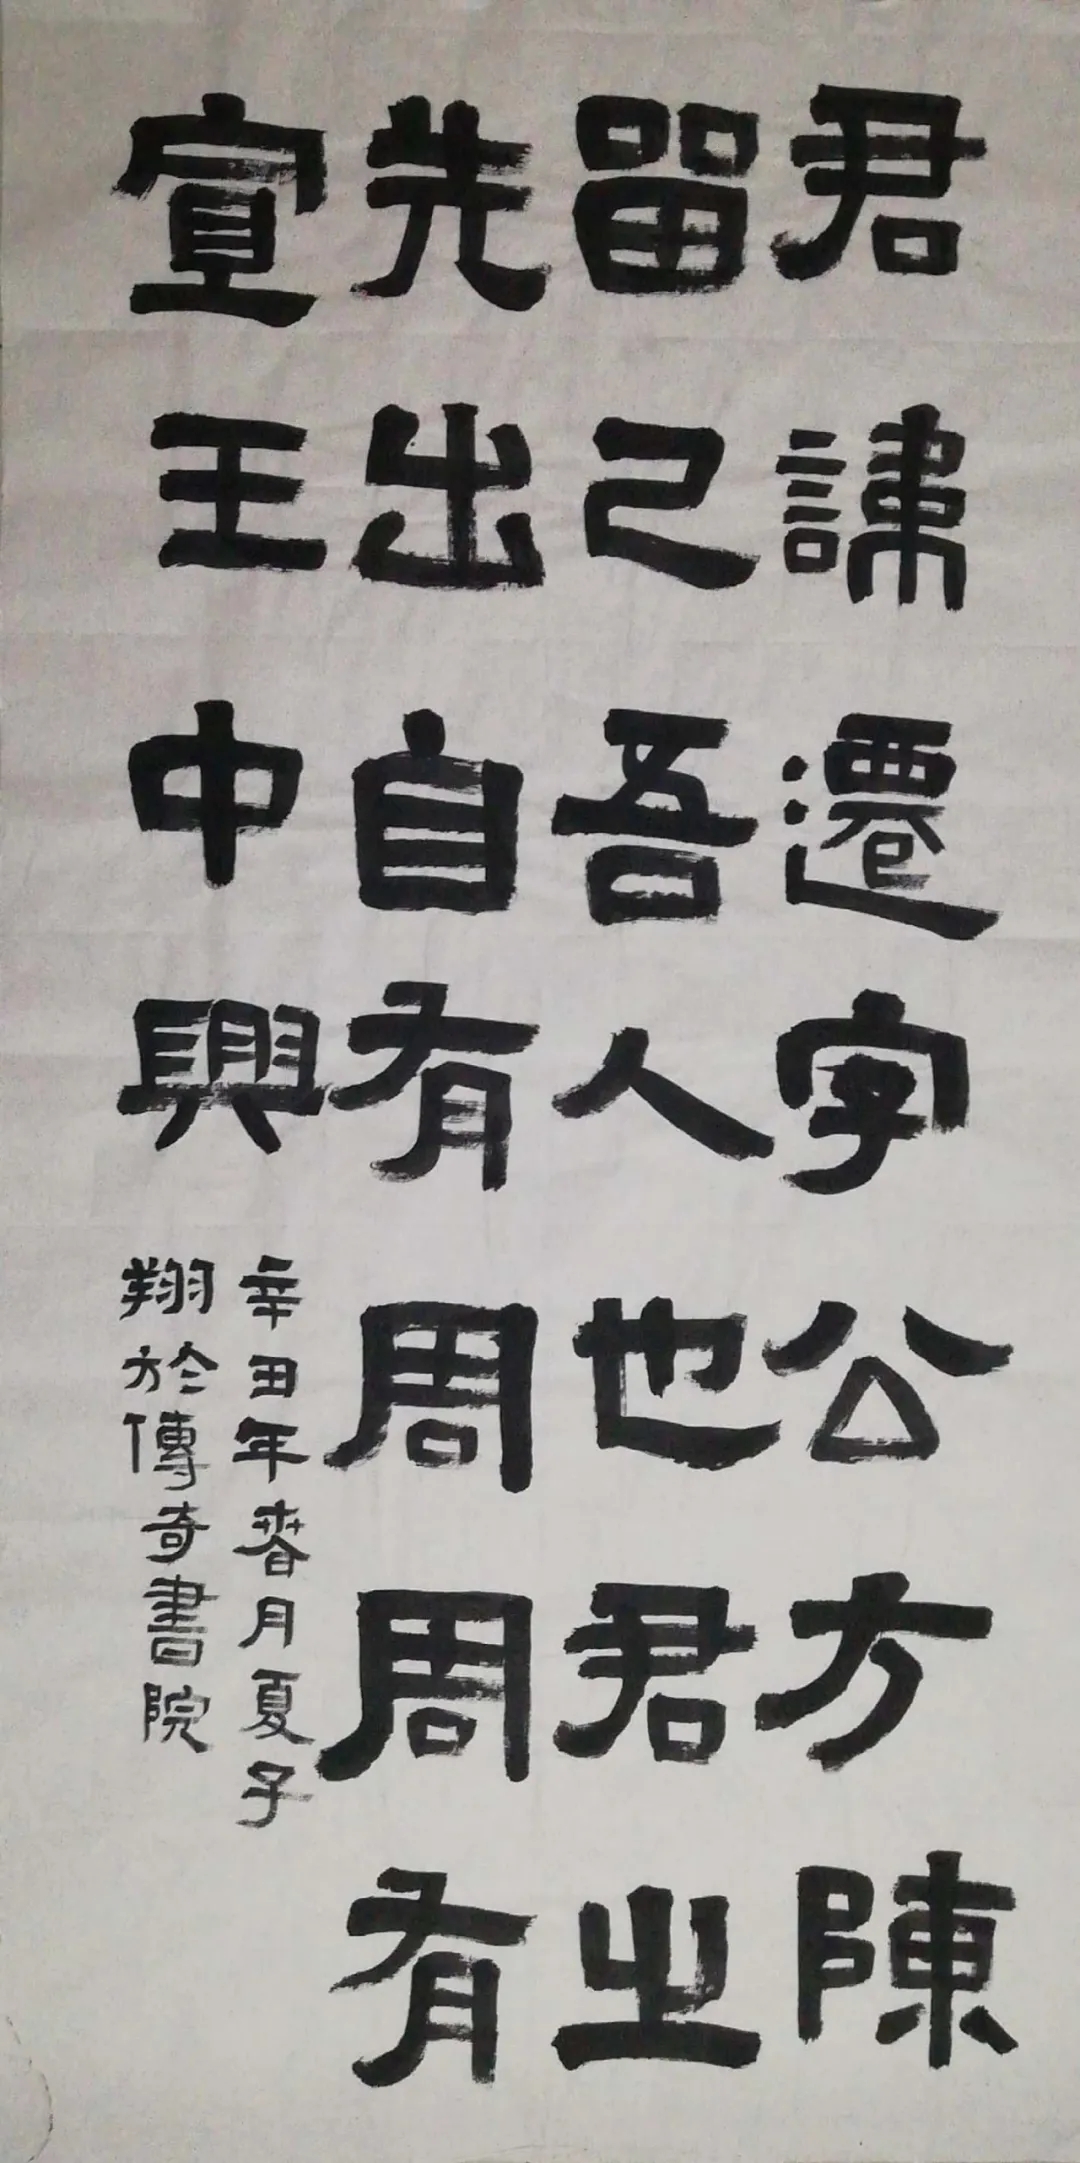 君諱遷字公方陳
留己吾人也君之
先出自有周周有
宣王中興
辛丑年春月夏子
翔於傳奇書院